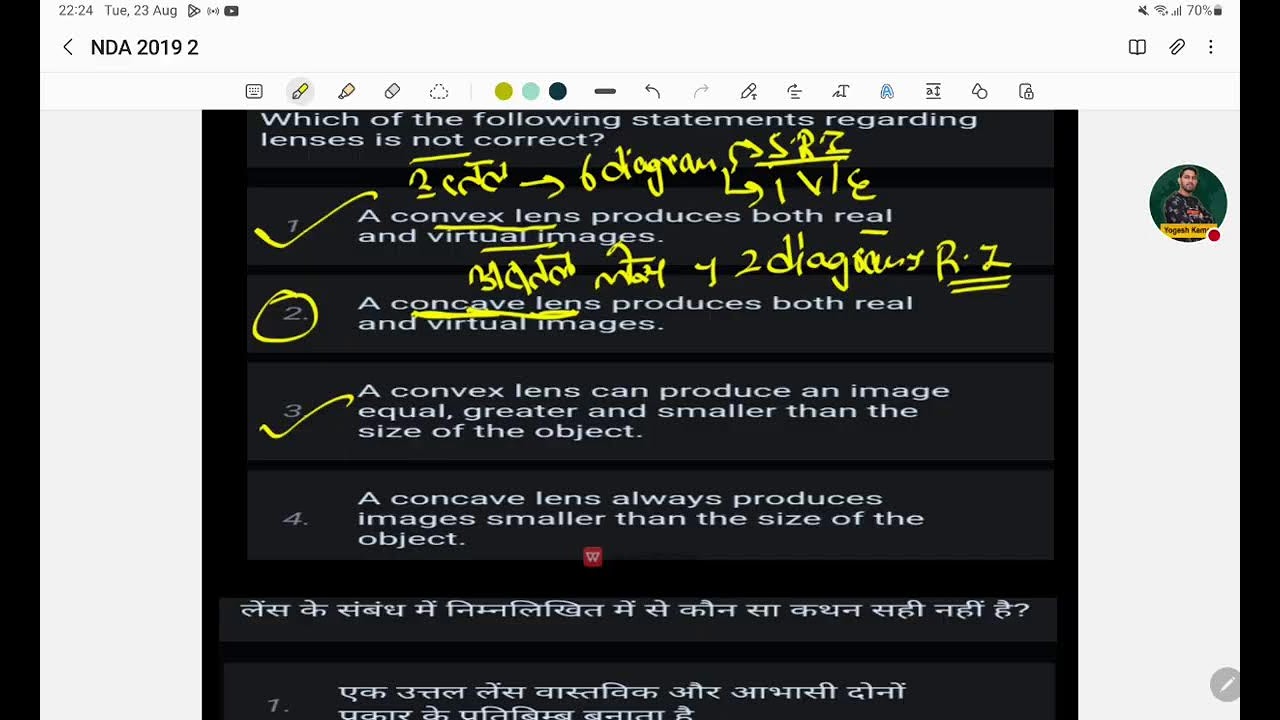 22:24 Tue, 23 Aug
70%
NDA 2019 2
Which of the following statements regarding
lenses is not correct?
उत्तल → 6 diagram S.R.I
1 V/E
1
A convex lens produces both real
and virtual images.
अवतल लेंस 2 diagrams R.I
2.
A concave lens produces both real
and virtual images.
3
A convex lens can produce an image
equal, greater and smaller than the
size of the object.
4.
A concave lens always produces
images smaller than the size of the
object.
W
लेंस के संबंध में निम्नलिखित में से कौन सा कथन सही नहीं है?
1.
एक उत्तल लेंस वास्तविक और आभासी दोनों
प्रकार के प्रतिबिम्ब बनाता है